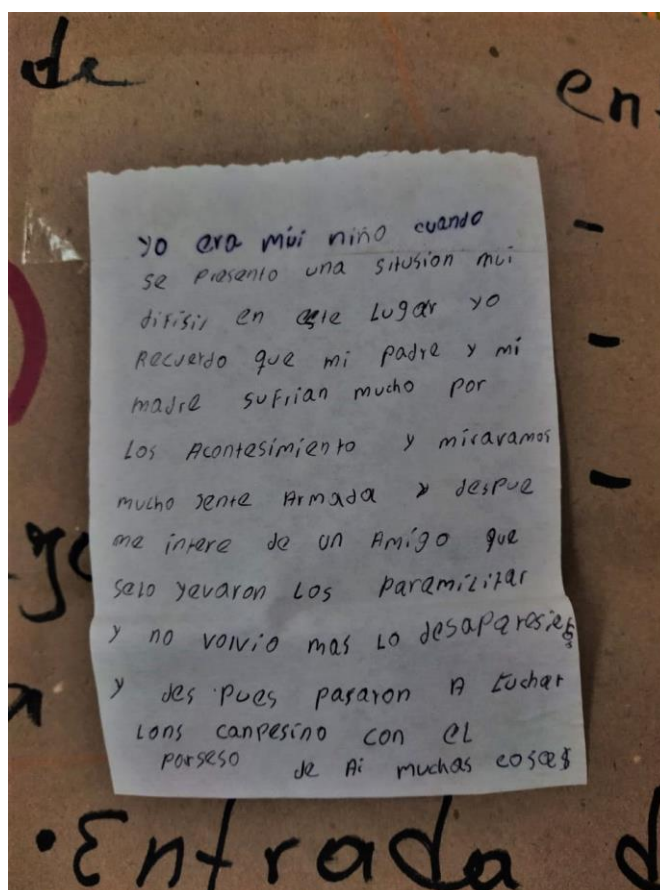 de
en
yo era múi niño cuando
se presento una situsion mui
difisis en este Lugar yo
Recuerdo que mi padre y mi
madre sufrian mucho por
Los Acontesimiento y miravamos
mucho jente Armada y despue
me intere de un Amigo que
selo yevaron Los paramilitar
y no volvio mas Lo desaparesies
y des pues pasaron A Luchar
Lons canpesino con eL
porseso de Ai muchas cosas
• Entrada d